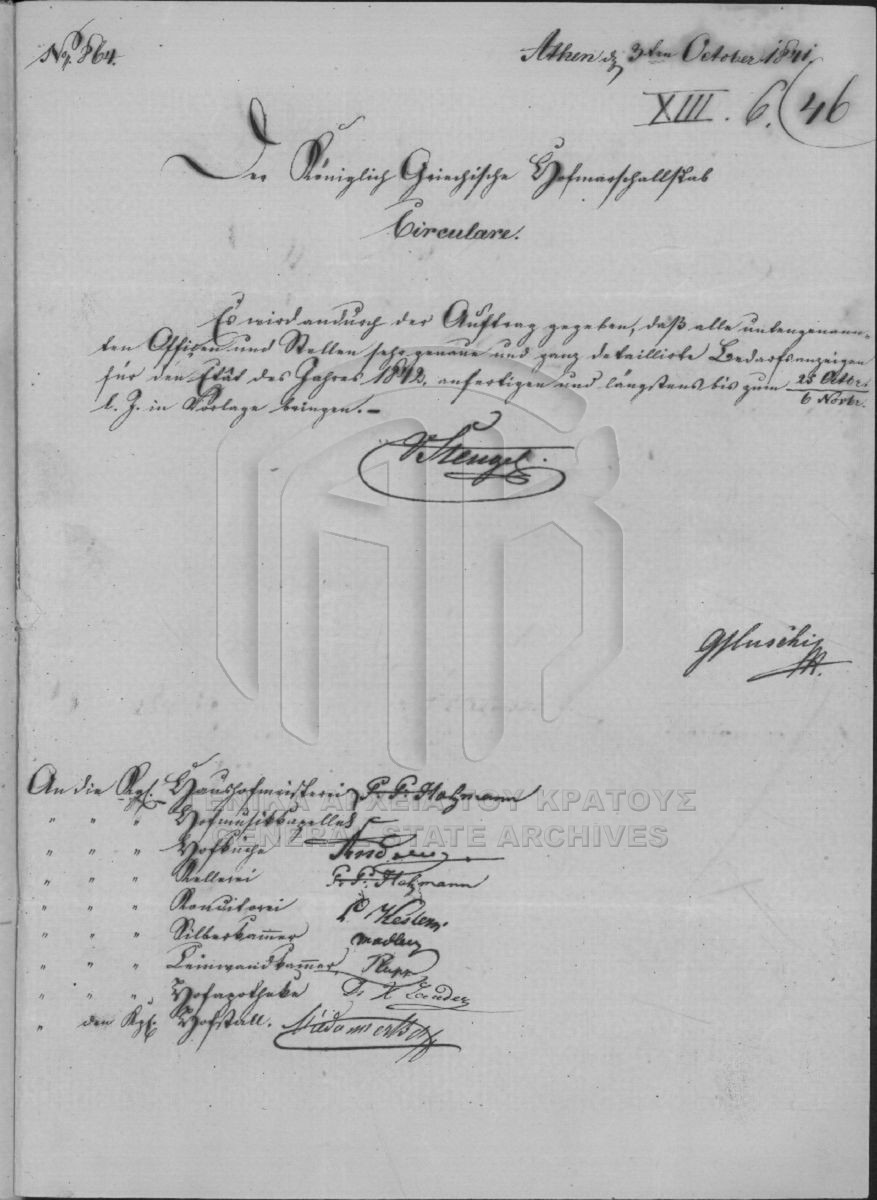 No. 864.
Athen d. 3ten October 1841
XIII. 6. (46
Der Königlich Griechische Hofmarschallstab
Circulare.
Es wird andurch der Auftrag gegeben, daß alle untengenann-
ten Officen und Stellen sehr genaue und ganz detaillirte Bedarfsanzeigen
für den Etat des Jahres 1842. anfertigen und längstens bis zum 25 Octbr. / 6 Novbr.
l. J. in Vorlage bringen.–
V Stengel.
An die Kgl. Haushofmeisterei Holzmann
" " " Hofmusikkapelle
" " " Hofküche
" " " Kellerei Holzmann
" " " Konditorei
" " " Silberkammer
" " " Leinwandkammer
" " " Hofapotheke
" den Kgl. Hofstall.
ΓΕΝΙΚΑ ΑΡΧΕΙΑ ΤΟΥ ΚΡΑΤΟΥΣ
GENERAL STATE ARCHIVES